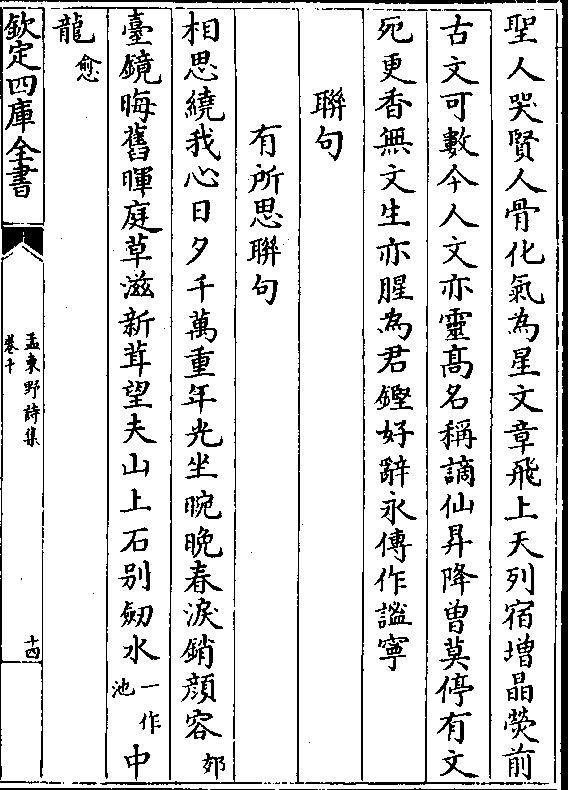 聖人哭賢人骨化氣為星文章飛上天列宿增晶熒前
古文可數今人文亦靈高名稱謫仙昇降曾莫停有文
死更香無文生亦腥為君鏗好辭永傳作謐寧
聯句
有所思聯句
相思繞我心日夕千萬重年光坐晼晚春淚銷顔容郊
臺鏡晦舊暉庭草滋新茸望夫山上石别劒水一作池中
龍愈
欽定四庫全書
孟東野詩集
卷十
十四